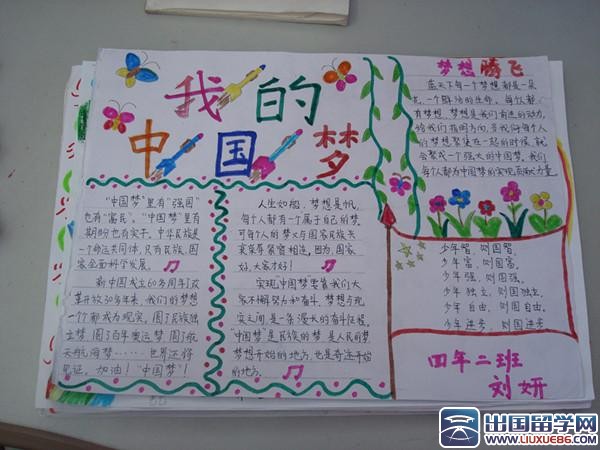 我的
中国梦
"中国梦"里有"强国"
也有"富民"。"中国梦"里有
期盼也有实干。中华民族是
一个命运共同体,只有民族、国
家全面科学发展。
新中国成立60多周年了改
革开放30多年来,我们的梦想
一个个都成为现实。圆了民族独
立梦。圆了百年奥运梦。圆了航
天航海梦……世界还将
见证。加油!"中国梦"!
人生如船,梦想是帆,
每个人都有一个属于自己的梦。
可每个人的梦又与国家民族去
荣辱紧紧相连。因为,国家
好,大家才好!
实现"中国梦"需靠我们大
家不懈努力和奋斗,梦想与现
实之间是一条漫长的奋斗征程,
"中国梦"是民族的梦 是人民的梦
梦想开始的地方,也是奇迹开始
的地方。
梦想腾飞
蓝天下每一个梦想都是一朵
花、一个鲜活的生命,每人都
有梦想。梦想是我们前进的动力,
给我们指明方向,当我们每个人
的梦想聚集在一起的时候,就
会聚成一个强大的中国梦,我们
每个人都为中国梦的实现贡献力量
少年智,则国智,
少年富,则国富,
少年强,则国强,
少年独立,则国独立,
少年自由,则国自由,
少年进步,则国进步
四年二班
刘妍
出国留学网
WWW.LIUXUE86.COM